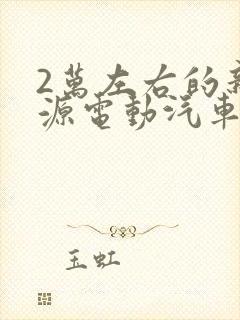 2萬左右的新
源電動汽車
玉虹